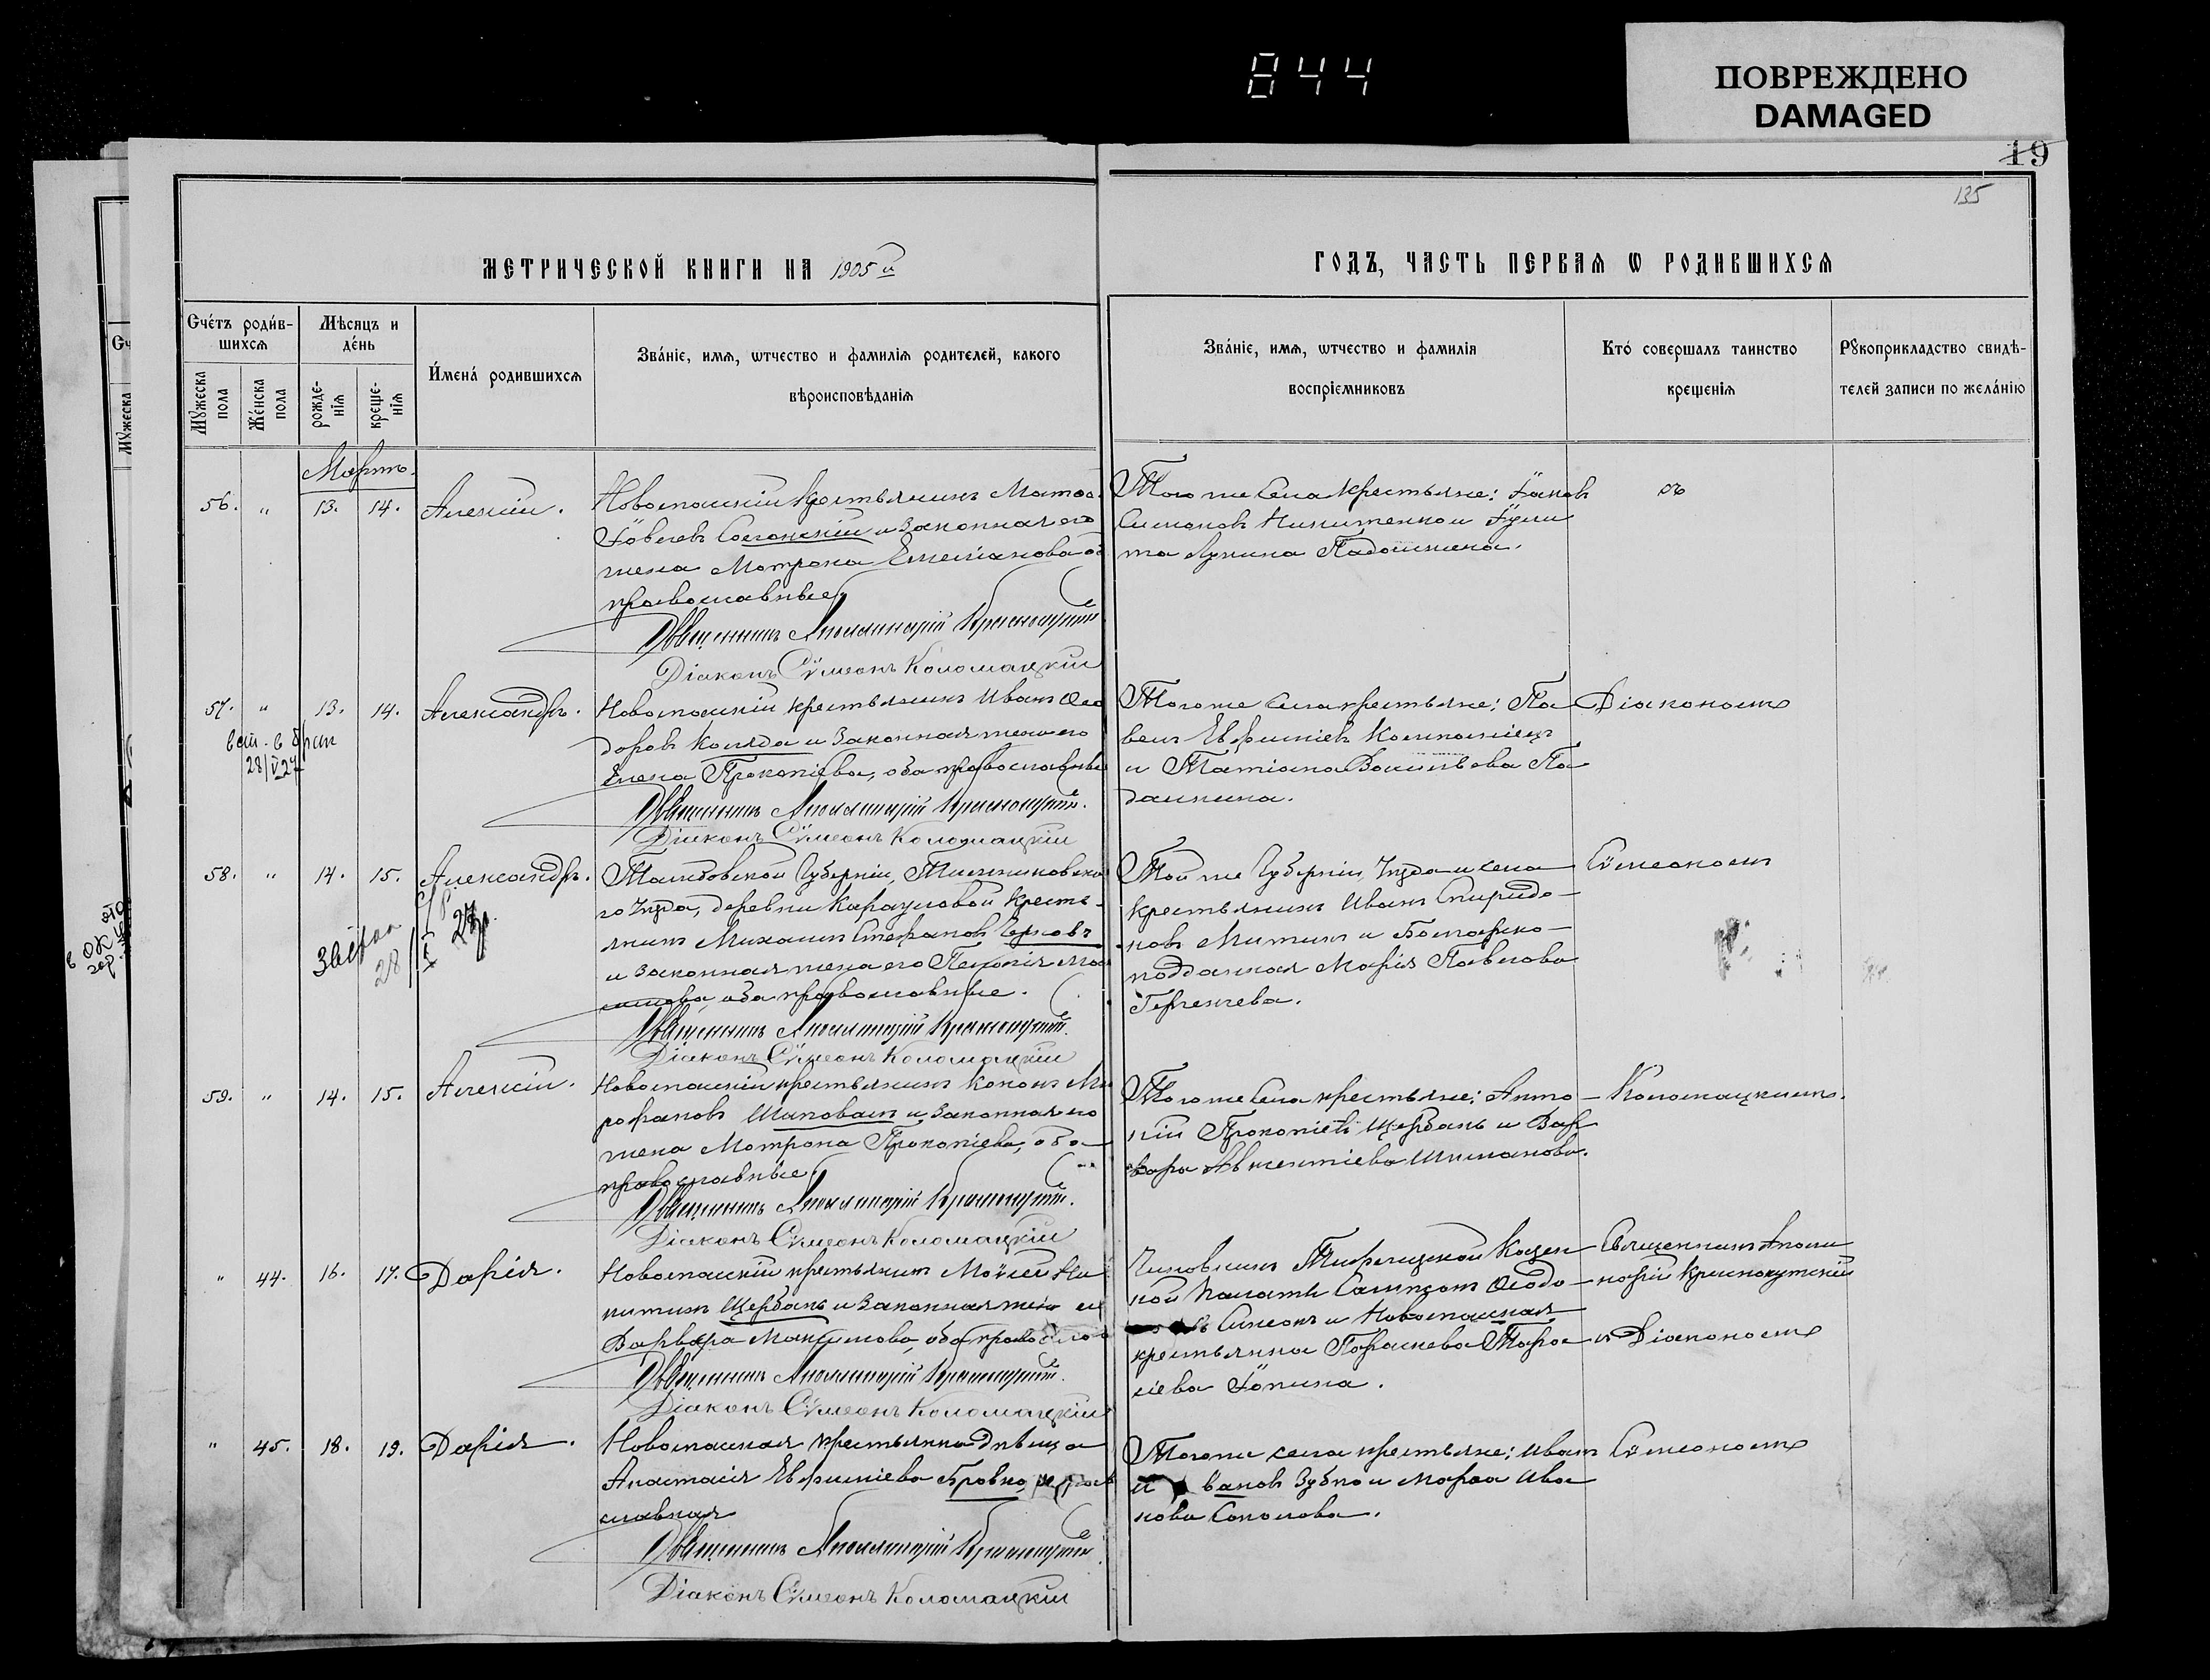 844
ПОВРЕЖДЕНО
DAMAGED
19
135
МЕТРИЧЕСКОЙ КНИГИ НА 1905й
ГОДЪ, ЧАСТЬ ПЕРВАЯ Ѡ РОДИВШИХСЯ
Счетъ родив-
шихся
Мѣсяцъ и
день
Мужеска пола
Женска пола
рожде-
нія
креще-
нія
Имена родившихся
Званіе, имя, ѡтчество и фамилія родителей, какого
вѣроисповѣданія
Званіе, имя, ѡтчество и фамилія
воспріемниковъ
Кто совершалъ таинство
крещенія
Рукоприкладство свидѣ-
телей записи по желанію
Мартъ.
56. " 13. 14. Алексій.
Новоспаскій крестьянинъ
и законная его
жена Матрона Емеліанова
православные
Священникъ Аполлинарій Краснокутскій
Діаконъ Сѵмеонъ Коломацкій
Того же села крестьяне: Іаковъ
Симоновъ Никитенко и Іули
та Лукина
съ
57. " 13. 14. Александръ.
28/V 27
Новоспаскій крестьянинъ Иванъ Ѳео
доровъ Коляда и законная жена его
Елена Прокопіева, оба православные
Священникъ Аполлинарій Краснокутскій.
Діаконъ Сѵмеонъ Коломацкій
Того же села крестьяне: Па
велъ Евфиміевъ
и Татіана Васильева Па
далкина.
Діакономъ
58. " 14. 15. Александръ.
Тамбовской Губерніи, Темниковска
го Уѣзда, деревни Карауловой кресть-
янинъ Михаилъ Стефановъ
и законная жена его Пелагія
оба православные.
Священникъ Аполлинарій Краснокутскій.
Діаконъ Сѵмеонъ Коломацкій
Той же Губерніи, Уѣзда и села
крестьянинъ Иванъ Спиридо-
новъ Митинъ и Болгарско-
подданная Марія Павлова
Сѵмеономъ
59. " 14. 15. Алексій.
Новоспаскій крестьянинъ Кононъ Ми
рофановъ Шаповалъ и законная его
жена Матрона Прокопіева, оба
православные
Священникъ Аполлинарій Краснокутскій.
Діаконъ Сѵмеонъ Коломацкій
Того же села крестьяне: Анто-
ній Прокопіевъ Щербань и Вар
вара Авксентіева
Коломацкимъ.
" 44. 16. 17. Дарія.
Новоспаскій крестьянинъ Моѵсей Ни
китинъ Щербань и законная жена его
Варвара Максимова, оба
Священникъ Аполлинарій Краснокутскій.
Діаконъ Сѵмеонъ Коломацкій
Чиновникъ Казен
ной Палаты
и Новоспаская
крестьянка Параскева Тара
сіева
Священникъ Аполли
нарій Краснокутскій
и Діакономъ
" 45. 18. 19. Дарія.
Новоспаская крестьянка дѣвица
Анастасія Евфиміева Бровко,
славная
Священникъ Аполлинарій Краснокутскій.
Діаконъ Сѵмеонъ Коломацкій
Того же села крестьяне: Иванъ
Ивановъ Зубко и Марѳа Ива
нова Соколова.
Сѵмеономъ